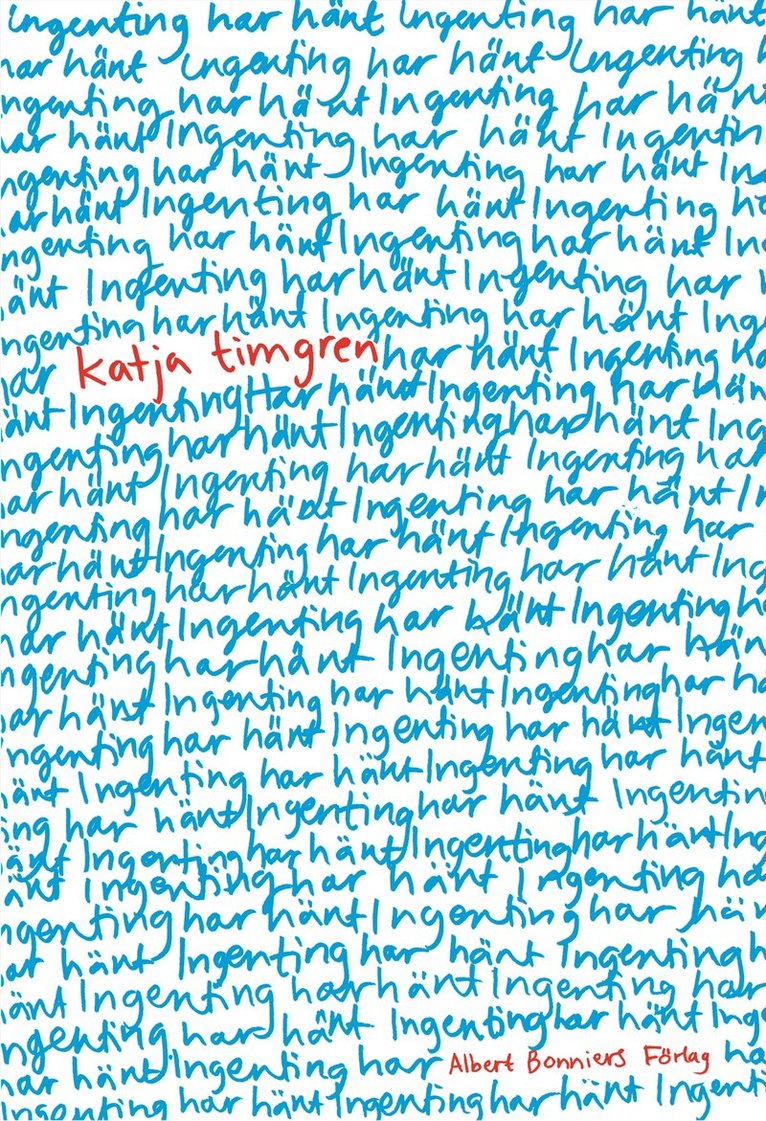 Ingenting har hänt Ingenting har hänt
har hänt Ingenting har hänt Ingenting h
ngenting har hänt Ingenting har hän
ar hänt Ingenting har hänt Ingentin
ngenting har hänt Ingenting har hänt In
ar hänt Ingenting har hänt Ingenting ha
ngenting har hänt Ingenting har hänt In
änt Ingenting har hänt Ingenting har
ngenting har hänt Ingenting har hänt Ing
har katja timgren har hänt Ingenting ha
änt Ingenting Har hänt Ingenting har hän
ngenting har hänt Ingenting har hänt Ing
ar hänt Ingenting har hänt Ingenting har
ngenting har hänt Ingenting har hänt I
ar hänt Ingenting har hänt Ingenting har
ngenting har hänt Ingenting har hänt Ing
har hänt Ingenting har hänt Ingenting h
ngenting har hänt Ingenting har hän
ar hänt Ingenting har hänt Ingenting har h
ngenting har hänt Ingenting har hänt Ingen
änt Ingenting har hänt Ingenting har hänt
ing har hänt Ingenting har hänt Ingentin
änt Ingenting har hänt Ingenting har hänt Ing
änt Ingenting har hänt Ingenting hä
ngenting har hänt Ingenting har hän
ar hänt Ingenting har hänt Ingenting h
änt Ingenting har hänt Ingenting har
ngenting har hänt Ingenting har hänt Ing
har hänt Ingenting har Albert Bonniers Förlag ha
Ingenting har hänt Ingenting har hänt Ingenti